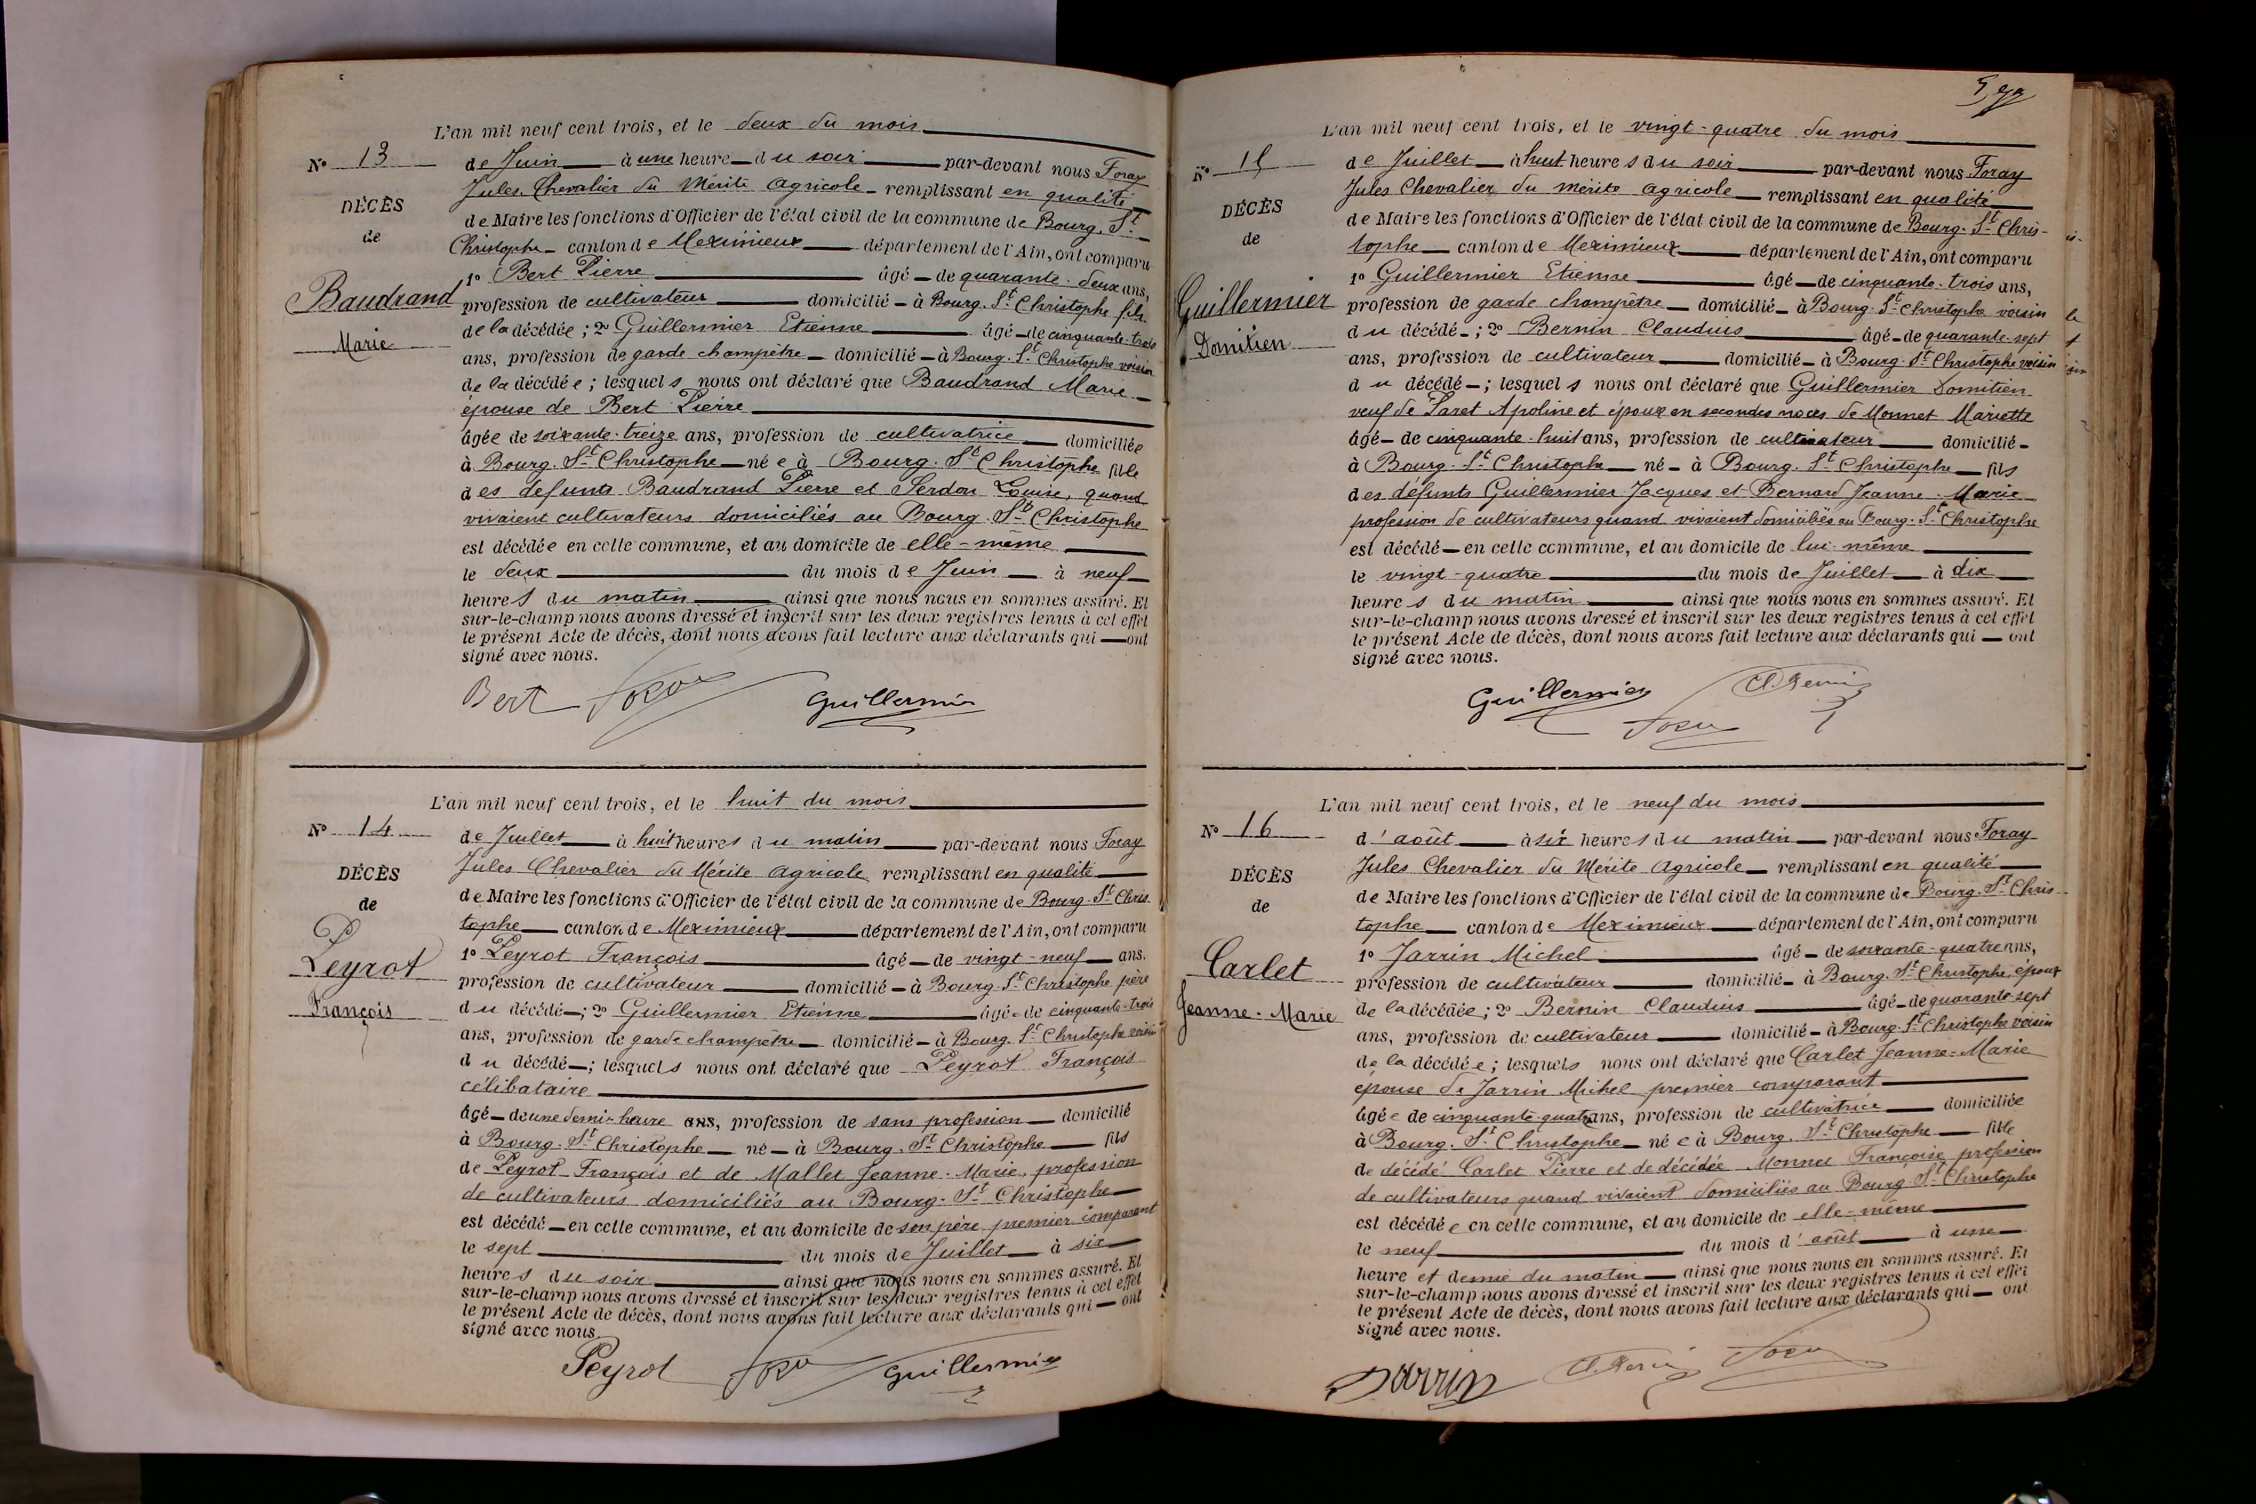 L'an mil neuf cent trois, et le deux du mois
N° 13
de Juin à une heure du soir par-devant nous Foray
Jules Chevalier du Mérite Agricole remplissant en qualité
DÉCÈS
de Maire les fonctions d'Officier de l'état civil de la commune de Bourg. St
de
Christophe canton de Meximieux département de l'Ain, ont comparu
1° Bert Pierre âgé de quarante-deux ans,
Baudrand
profession de cultivateur domicilié à Bourg. St Christophe fils
Marie
de la décédée; 2° Guillermier Etienne âgé de cinquante-trois
ans, profession de garde champêtre domicilié à Bourg. St Christophe voisin
de la décédée; lesquels nous ont déclaré que Baudrand Marie
épouse de Bert Pierre
âgée de soixante-treize ans, profession de cultivatrice domiciliée
à Bourg. St Christophe née à Bourg. St Christophe fille
des défunts Baudrand Pierre et Serdon Louise, quand
vivaient cultivateurs domiciliés au Bourg St Christophe
est décédée en cette commune, et au domicile de elle-même
le deux du mois de Juin à neuf
heures du matin ainsi que nous nous en sommes assuré. Et
sur-le-champ nous avons dressé et inscrit sur les deux registres tenus à cet effet
le présent Acte de décès, dont nous avons fait lecture aux déclarants qui ont
signé avec nous.
Bert Foray Guillermier
L'an mil neuf cent trois, et le huit du mois
N° 14
de Juillet à huit heures du matin par-devant nous Foray
Jules Chevalier du Mérite Agricole remplissant en qualité
DÉCÈS
de Maire les fonctions d'Officier de l'état civil de la commune de Bourg. St Chris
de
tophe canton de Meximieux département de l'Ain, ont comparu
Peyrot
1° Peyrot François âgé de vingt-neuf ans.
profession de cultivateur domicilié à Bourg. St Christophe père
François
du décédé; 2° Guillermier Etienne âgé de cinquante-trois
ans, profession de garde champêtre domicilié à Bourg. St Christophe voisin
du décédé; lesquels nous ont déclaré que Peyrot François
célibataire
âgé de une demi-heure ans, profession de sans profession domicilié
à Bourg. St Christophe né à Bourg. St Christophe fils
de Peyrot François et de Mallet Jeanne-Marie, profession
de cultivateurs domiciliés au Bourg. St Christophe
est décédé en cette commune, et au domicile de son père premier comparant
le sept du mois de Juillet à six
heures du soir ainsi que nous nous en sommes assuré. Et
sur-le-champ nous avons dressé et inscrit sur les deux registres tenus à cet effet
le présent Acte de décès, dont nous avons fait lecture aux déclarants qui ont
signé avec nous.
Peyrot Foray Guillermier
L'an mil neuf cent trois, et le vingt-quatre du mois
N° 15
de Juillet à huit heures du soir par-devant nous Foray
Jules Chevalier du mérite Agricole remplissant en qualité
DÉCÈS
de Maire les fonctions d'Officier de l'état civil de la commune de Bourg. St Chris-
de
tophe canton de Meximieux département de l'Ain, ont comparu
1° Guillermier Etienne âgé de cinquante-trois ans,
Guillermier
profession de garde champêtre domicilié à Bourg. St Christophe voisin
Domitien
du décédé; 2° Bernin Claudius âgé de quarante-sept
ans, profession de cultivateur domicilié à Bourg. St Christophe voisin
du décédé; lesquels nous ont déclaré que Guillermier Domitien
veuf de Paret Apoline et époux en secondes noces de Monnet Mariette
âgé de cinquante-huit ans, profession de cultivateur domicilié
à Bourg. St Christophe né à Bourg. St Christophe fils
des défunts Guillermier Jacques et Bernard Jeanne-Marie
profession de cultivateurs quand vivaient domiciliés au Bourg. St Christophe
est décédé en cette commune, et au domicile de lui-même
le vingt-quatre du mois de Juillet à dix
heures du matin ainsi que nous nous en sommes assuré. Et
sur-le-champ nous avons dressé et inscrit sur les deux registres tenus à cet effet
le présent Acte de décès, dont nous avons fait lecture aux déclarants qui ont
signé avec nous.
Guillermier Foray Cl. Bernin
L'an mil neuf cent trois, et le neuf du mois
N° 16
d'août à six heures du matin par-devant nous Foray
Jules Chevalier du Mérite Agricole remplissant en qualité
DÉCÈS
de Maire les fonctions d'Officier de l'état civil de la commune de Bourg. St Chris
de
tophe canton de Meximieux département de l'Ain, ont comparu
1° Jarrin Michel âgé de soixante-quatre ans,
Carlet
profession de cultivateur domicilié à Bourg. St Christophe, époux
Jeanne-Marie
de la décédée; 2° Bernin Claudius âgé de quarante-sept
ans, profession de cultivateur domicilié à Bourg. St Christophe voisin
de la décédée; lesquels nous ont déclaré que Carlet Jeanne-Marie
épouse de Jarrin Michel premier comparant
âgée de cinquante-quatre ans, profession de cultivatrice domiciliée
à Bourg. St Christophe née à Bourg. St Christophe fille
de décédé Carlet Pierre et de décédée Monnet Françoise profession
de cultivateurs quand vivaient domiciliés au Bourg St Christophe
est décédée en cette commune, et au domicile de elle-même
le neuf du mois d'août à une
heure et demie du matin ainsi que nous nous en sommes assuré. Et
sur-le-champ nous avons dressé et inscrit sur les deux registres tenus à cet effet
le présent Acte de décès, dont nous avons fait lecture aux déclarants qui ont
signé avec nous.
Jarrin Cl. Bernin Foray